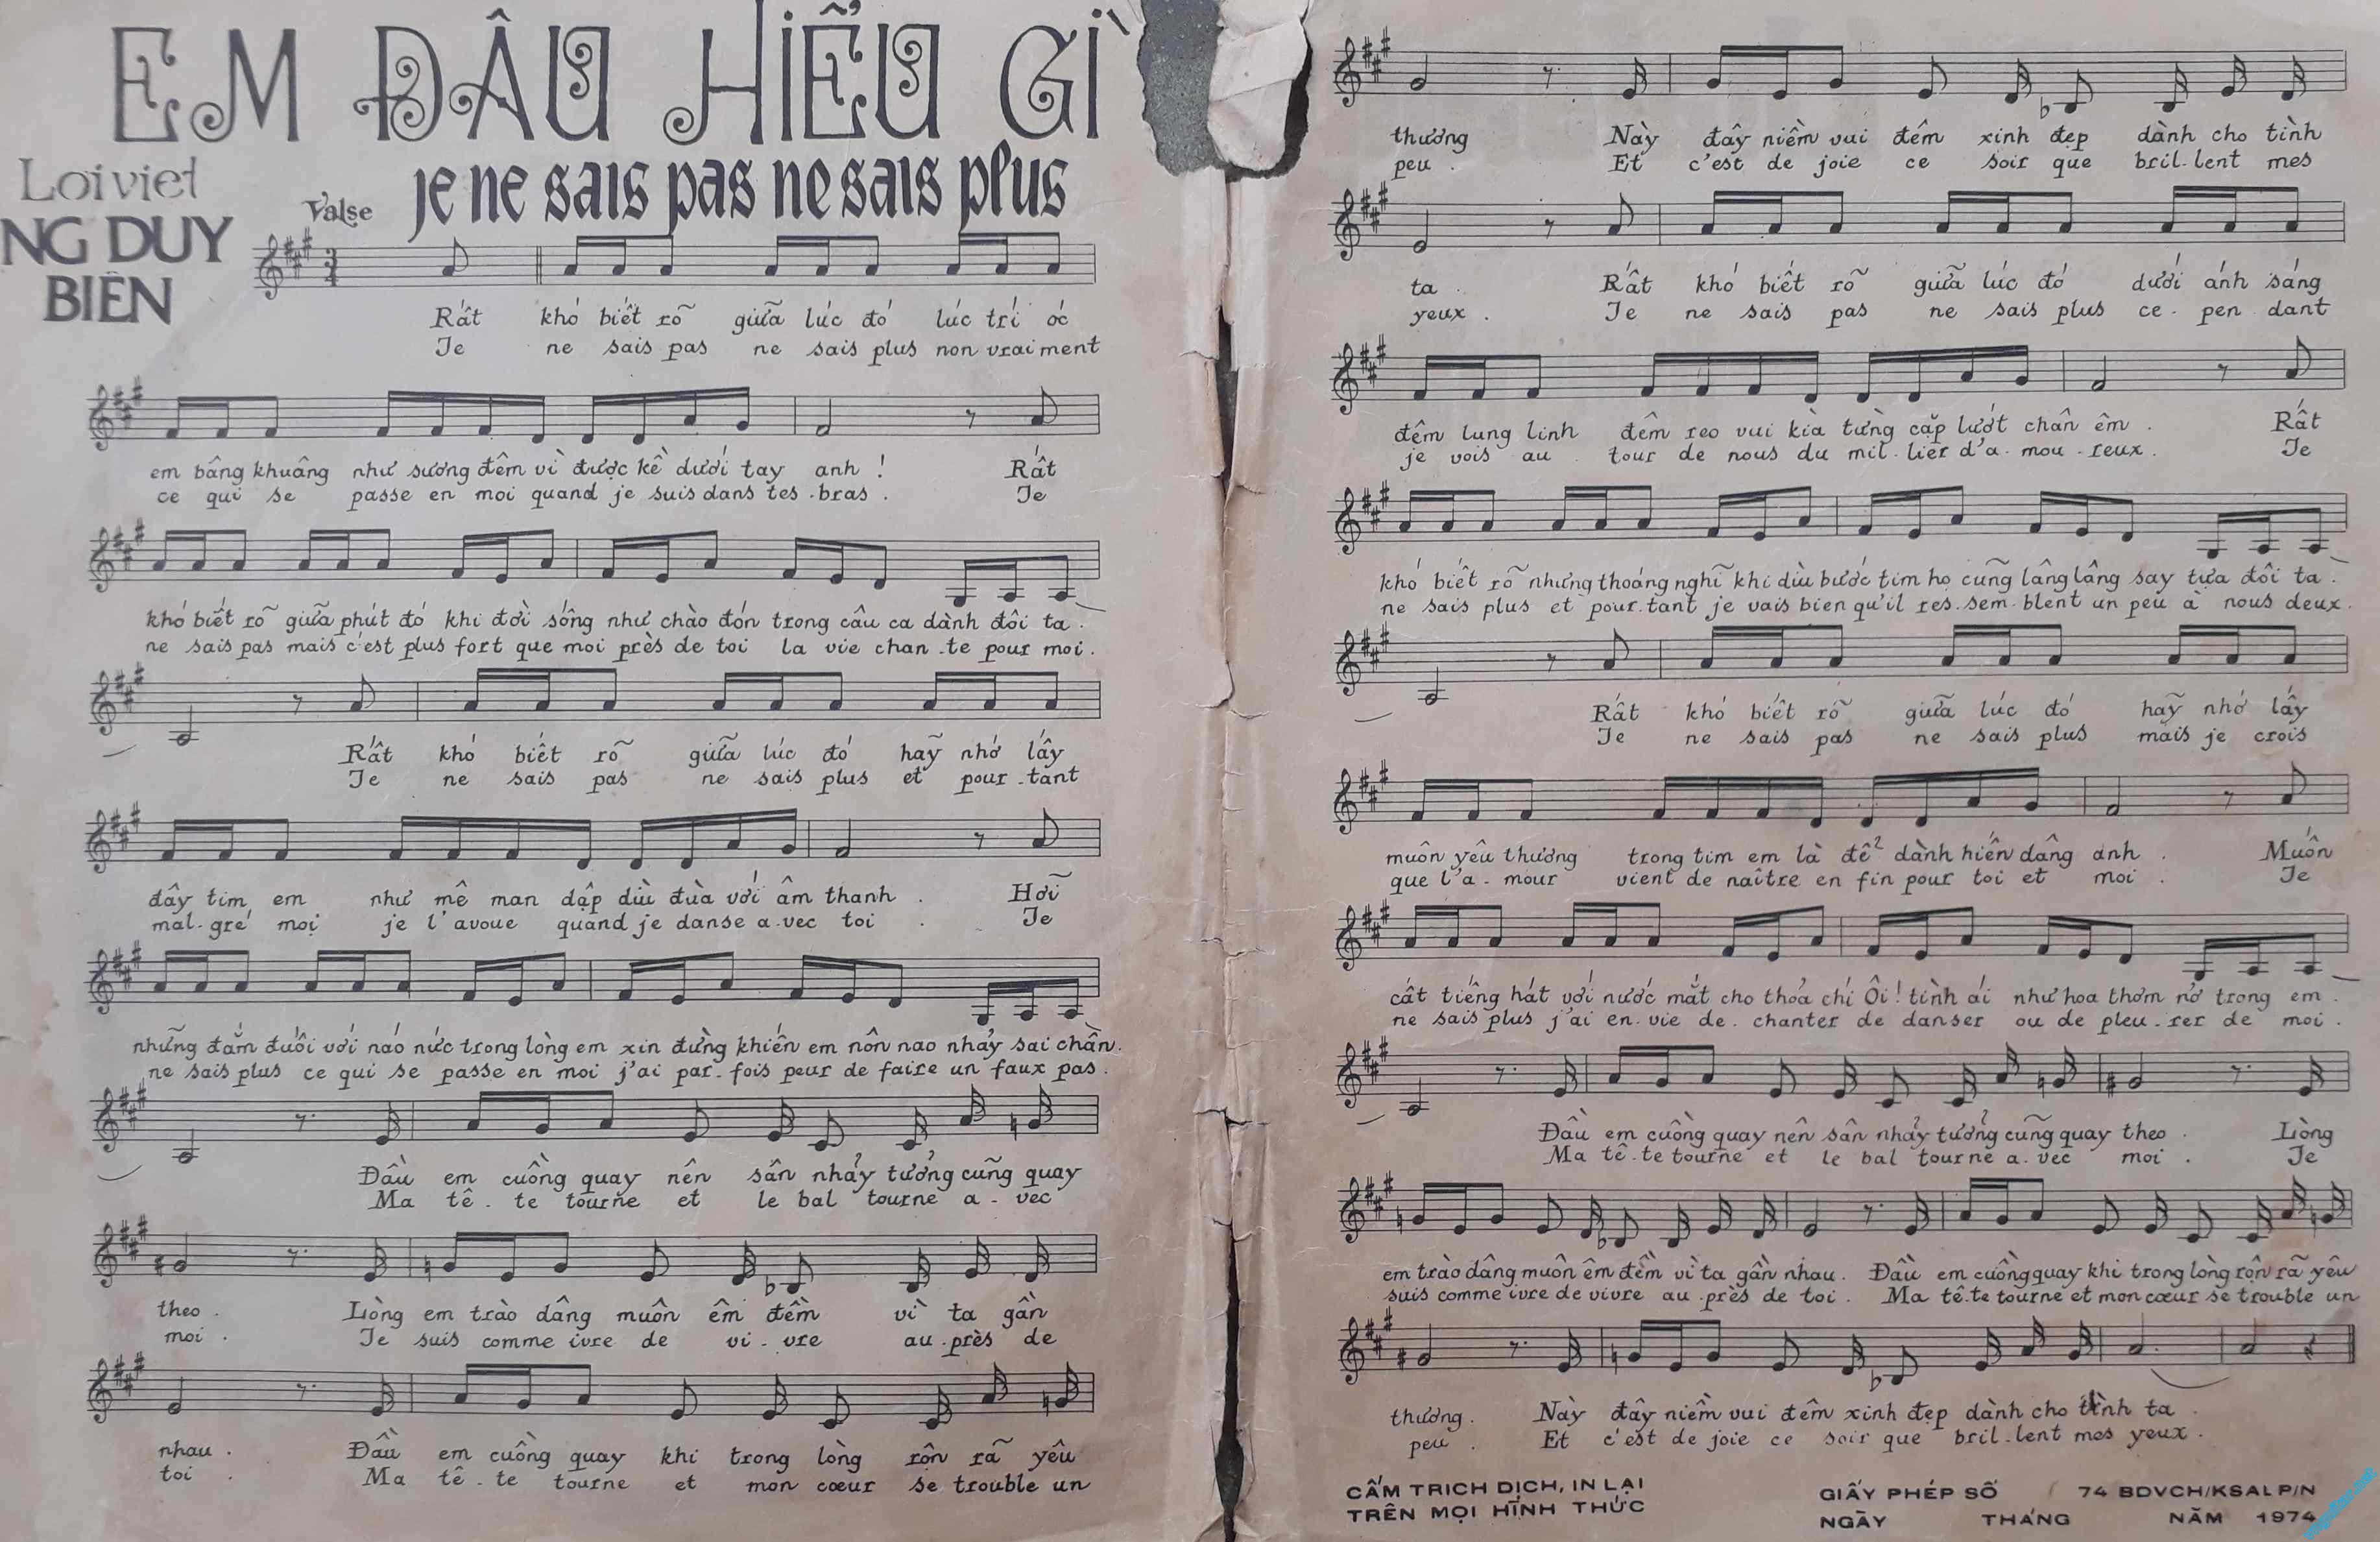 EM ĐÂU HIỂU GÌ
je ne sais pas ne sais plus
Loi viet
NG DUY
BIÊN
Valse
Rất khó biết rõ giữa lúc đó lúc trí óc
Je ne sais pas ne sais plus non vrai ment
em bâng khuâng như sương đêm vì được kề dưới tay anh ! Rất
ce qui se passe en moi quand je suis dans tes .bras . Je
khó biết rõ giữa phút đó khi đời sống như chào đón trong câu ca dành đôi ta .
ne sais pas mais c'est plus fort que moi près de toi la vie chan .te pour moi .
Rất khó biết rõ giữa lúc đó hãy nhớ lấy
Je ne sais pas ne sais plus et pour .tant
đây tim em như mê man dập dìu đùa với âm thanh . Hỡi
mal.gré moi je l'avoue quand je danse a.vec toi . Je
những đắm đuối với náo nức trong lòng em xin đừng khiến em nôn nao nhảy sai chân.
ne sais plus ce qui se passe en moi j'ai par.fois peur de faire un faux pas .
Đầu em cuồng quay nên sân nhảy tưởng cũng quay
Ma tê . te tourne et le bal tourne a . vec
theo . Lòng em trào dâng muôn êm đềm vì ta gần
moi . Je suis comme ivre de vi . vre au .près de
nhau . Đầu em cuồng quay khi trong lòng rộn rã yêu
toi . Ma tê . te tourne et mon cœur se trouble un
thương Này đây niềm vui đêm xinh đẹp dành cho tình
peu . Et c'est de joie ce soir que bril.lent mes
ta . Rất khó biết rõ giữa lúc đó dưới ánh sáng
yeux . Je ne sais pas ne sais plus ce . pen dant
đêm lung linh đêm reo vui kìa từng cặp lướt chân êm . Rất
je vois au tour de nous du mil.lier d'a.mou.reux . Je
khó biết rõ nhưng thoáng nghĩ khi dìu bước tim họ cũng lâng lâng say tựa đôi ta .
ne sais plus et pour.tant je vais bien qu'il res.sem.blent un peu à nous deux.
Rất khó biết rõ giữa lúc đó hãy nhớ lấy
Je ne sais pas ne sais plus mais je crois
muôn yêu thương trong tim em là để dành hiến dâng anh . Muốn
que l'a.mour vient de naître en fin pour toi et moi . Je
cất tiếng hát với nước mắt cho thỏa chí Ôi ! tình ái như hoa thơm nở trong em .
ne sais plus j'ai en.vie de.chanter de danser ou de pleu.rer de moi .
Đầu em cuồng quay nên sân nhảy tưởng cũng quay theo . Lòng
Ma tê.te tourne et le bal tourne a.vec moi . Je
em trào dâng muôn êm đềm vì ta gần nhau . Đầu em cuồng quay khi trong lòng rộn rã yêu
suis comme ivre de vivre au .près de toi . Ma tê.te tourne et mon cœur se trouble un
thương . Này đây niềm vui đêm xinh đẹp dành cho tình ta .
peu . Et c'est de joie ce soir que bril.lent mes yeux .
CẤM TRICH DỊCH, IN LẠI
TRÊN MỌI HÌNH THỨC
GIẤY PHÉP SỐ / 74 BDVCH/KSALP/N
NGÀY THÁNG NĂM 1974